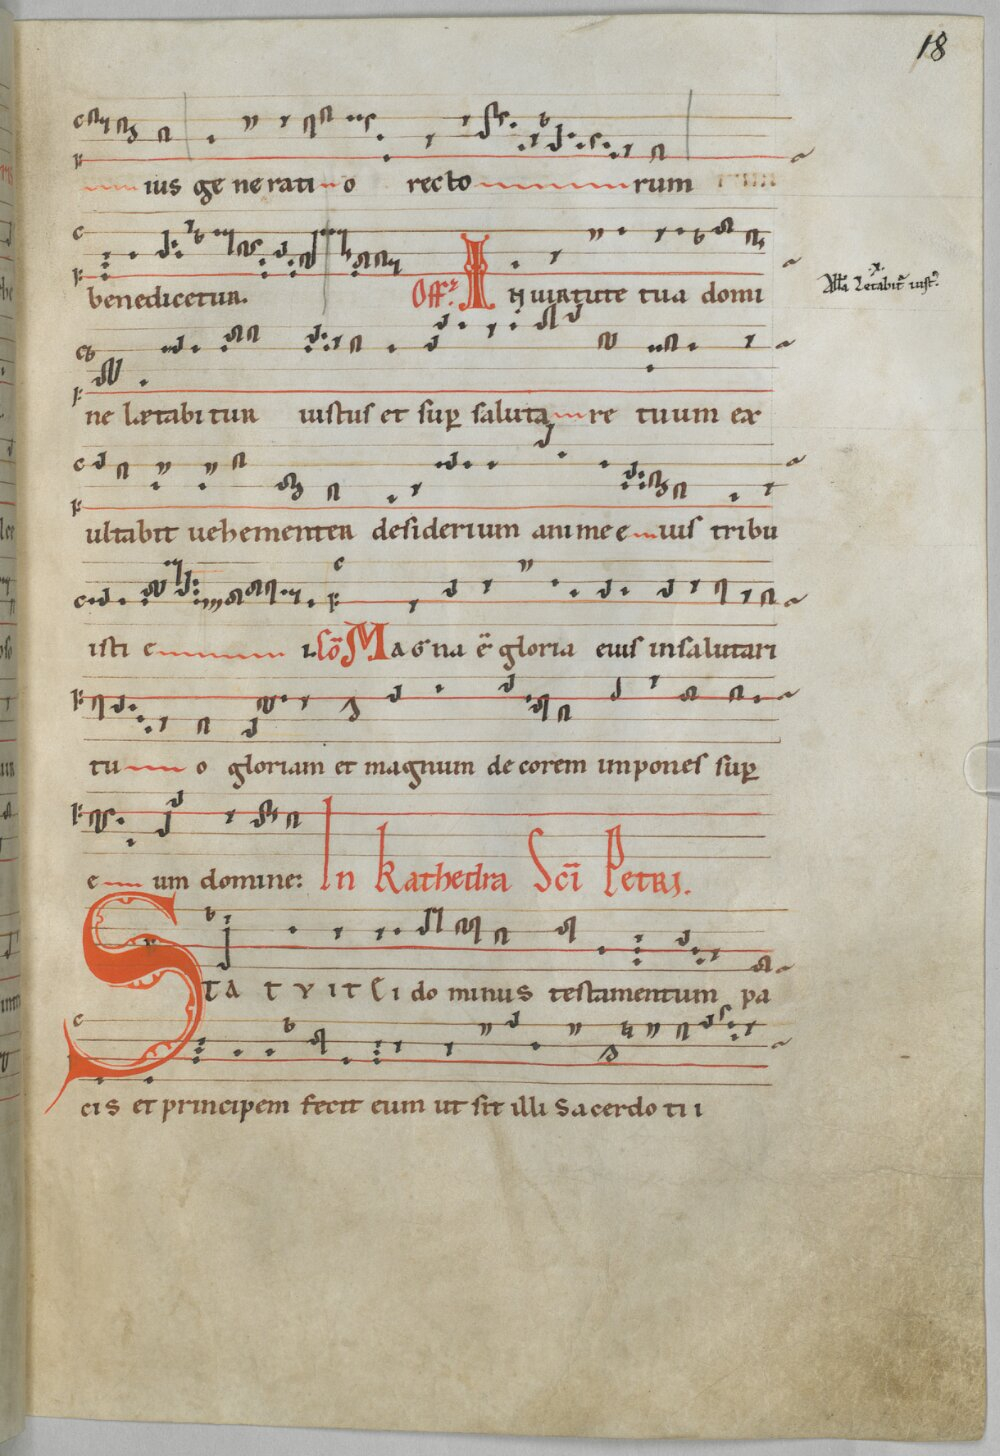 18
ius ge ne rati o recto rum
benedicetur. Off. In uirtute tua domi
Alla Letabit iust
ne lætabitur iustus et sup saluta re tuum ex
ultabit uehementer desiderium anime e ius tribu
isti e i. Co Magna e gloria eius in salutari
tu o gloriam et magnum decorem impones sup
e um domine: In Kathedra Sci Petri.
STATVIT ei dominus testamentum pa
cis et principem fecit eum ut sit illi sacerdo tii